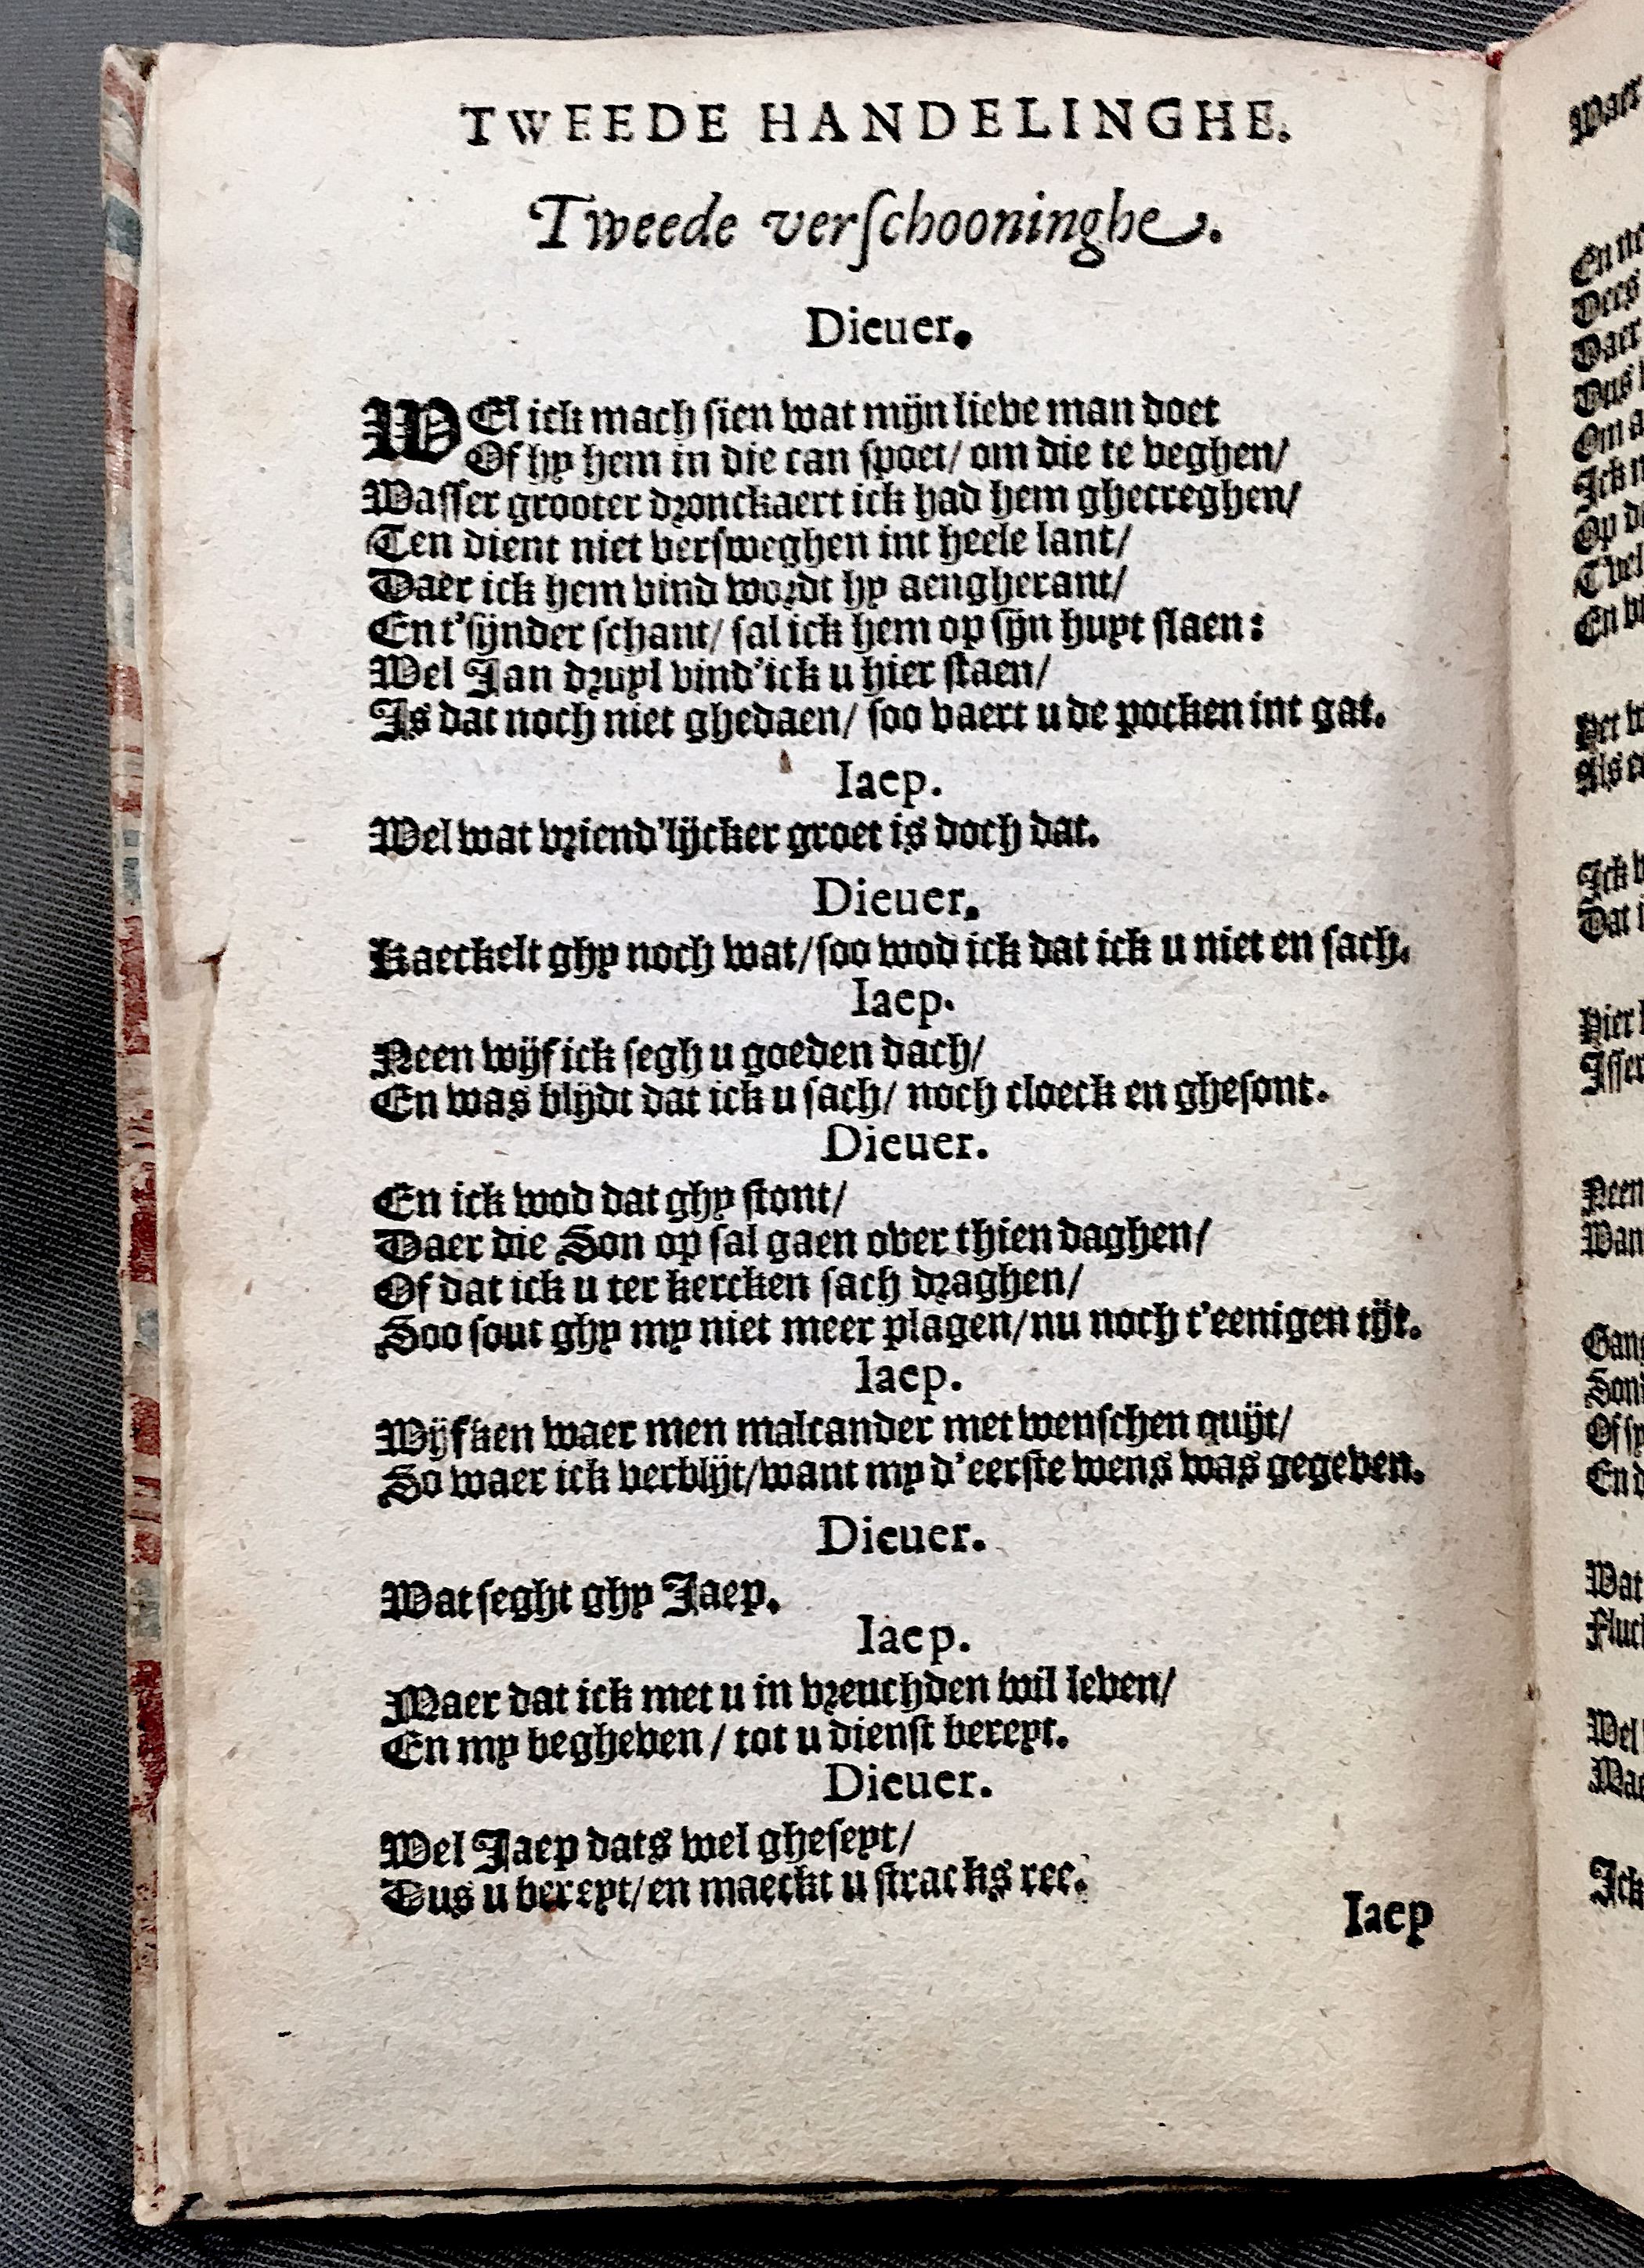 TWEEDE HANDELINGHE.
Tweede verſchooninghe.
Dieuer.
WEl ick mach ſien wat mijn lieve man doet
Of hy hem in die can ſpoet/ om die te veghen/
Waſſer grooter dronckaert ick had hem ghecreghen/
Ten dient niet verſweghen int heele lant/
Daer ick hem vind wordt hy aengherant/
En t'ſijnder ſchant/ ſal ick hem op ſijn huyt ſlaen:
Wel Jan druyl vind'ick u hier ſtaen/
Is dat noch niet ghedaen/ ſoo vaert u de pocken int gat.
Iaep.
Wel wat vriend'lijcker groet is doch dat.
Dieuer.
Kaeckelt ghy noch wat/ſoo wod ick dat ick u niet en ſach.
Iaep.
Neen wijf ick ſegh u goeden dach/
En was blijdt dat ick u ſach/ noch cloeck en gheſont.
Dieuer.
En ick wod dat ghy ſtont/
Daer die Son op ſal gaen over thien daghen/
Of dat ick u ter kercken ſach draghen/
Soo ſout ghy my niet meer plagen/nu noch t'eenigen tijt.
Iaep.
Wijfken waer men malcander met wenſchen quijt/
So waer ick verblijt/want my d'eerſte wens was gegeven.
Dieuer.
Wat ſeght ghy Jaep.
Iaep.
Maer dat ick met u in vreuchden wil leven/
En my begheven / tot u dienſt bereyt.
Dieuer.
Wel Jaep dats wel gheſeyt/
Dus u bereyt/en maeckt u ſtracks ree.
Iaep
Waer
En
Dees
Daer
Dus
Om
Ick
Op
En
Ick
Dat
Hier
Neen
Of
En
Wat
Wel
Ick